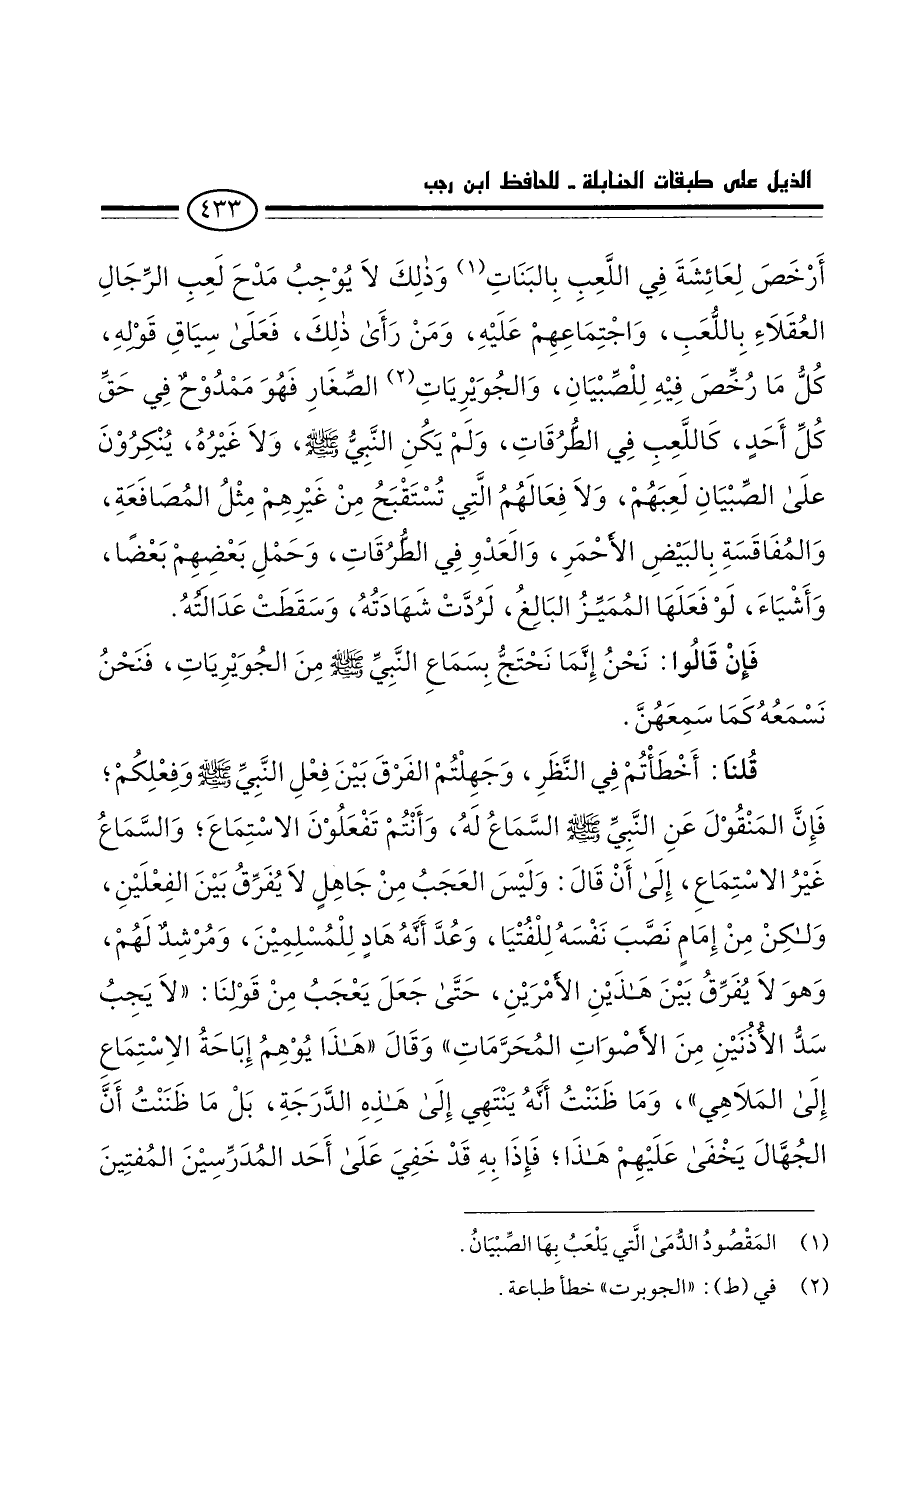 الذيل على طبقات الحنابلة - للحافظ ابن رجب
٤٣٣
أَرْخَصَ لِعَائِشَةَ فِي اللَّعِبِ بِالبَنَاتِ(١) وَذٰلِكَ لاَ يُوْجِبُ مَدْحَ لَعِبِ الرِّجَالِ
العُقَلَاءِ بِاللُّعَبِ، وَاجْتِمَاعِهِمْ عَلَيْهِ، وَمَنْ رَأَىٰ ذٰلِكَ، فَعَلَىٰ سِيَاقِ قَوْلِهِ،
كُلُّ مَا رُخِّصَ فِيْهِ لِلْصِّبْيَانِ، وَالجُوَيْرِيَاتِ(٢) الصِّغَارِ فَهُوَ مَمْدُوْحٌ فِي حَقِّ
كُلِّ أَحَدٍ، كَاللَّعِبِ فِي الطُّرُقَاتِ، وَلَمْ يَكُنِ النَّبِيُّ ﷺ، وَلاَ غَيْرُهُ، يُنْكِرُوْنَ
علَىٰ الصِّبْيَانِ لَعِبَهُمْ، وَلاَ فِعَالَهُمُ الَّتِي تُسْتَقْبَحُ مِنْ غَيْرِهِمْ مِثْلُ المُصَافَعَةِ،
وَالمُفَاقَسَةِ بِالبَيْضِ الأَحْمَرِ، وَالعَدْوِ فِي الطُّرُقَاتِ، وَحَمْلِ بَعْضِهِمْ بَعْضًا،
وَأَشْيَاءَ، لَوْ فَعَلَهَا المُمَيِّزُ البَالِغُ، لَرُدَّتْ شَهَادَتُهُ، وَسَقَطَتْ عَدَالَتُهُ.
فَإِنْ قَالُوا: نَحْنُ إِنَّمَا نَحْتَجُّ بِسَمَاعِ النَّبِيِّ ﷺ مِنَ الجُوَيْرِيَاتِ، فَنَحْنُ
نَسْمَعُهُ كَمَا سَمِعَهُنَّ.
قُلنَا: أَخْطَأْتُمْ فِي النَّظَرِ، وَجَهِلْتُمْ الفَرْقَ بَيْنَ فِعْلِ النَّبِيِّ ﷺ وَفِعْلِكُمْ؛
فَإِنَّ المَنْقُوْلَ عَنِ النَّبِيِّ ﷺ السَّمَاعُ لَهُ، وَأَنْتُمْ تَفْعَلُوْنَ الاسْتِمَاعَ؛ وَالسَّمَاعُ
غَيْرُ الاسْتِمَاعِ، إِلَىٰ أَنْ قَالَ: وَلَيْسَ العَجَبُ مِنْ جَاهِلٍ لاَ يُفَرِّقُ بَيْنَ الفِعْلَيْنِ،
وَلٰكِنْ مِنْ إِمَامٍ نَصَّبَ نَفْسَهُ لِلْفُتْيَا، وَعُدَّ أَنَّهُ هَادٍ لِلْمُسْلِمِيْنَ، وَمُرْشِدٌ لَهُمْ،
وَهوَ لاَ يُفَرِّقُ بَيْنَ هَـٰذَيْنِ الأَمْرَيْنِ، حَتَّىٰ جَعَلَ يَعْجَبُ مِنْ قَوْلِنَا: «لاَ يَجِبُ
سَدُّ الأُذُنَيْنِ مِنَ الأَصْوَاتِ المُحَرَّمَاتِ» وَقَالَ «هَـٰذَا يُوْهِمُ إِبَاحَةُ الاِسْتِمَاعِ
إِلَىٰ المَلَاهِي»، وَمَا ظَنَنْتُ أَنَّهُ يَنْتَهِي إِلَىٰ هَـٰذِهِ الدَّرَجَةِ، بَلْ مَا ظَنَنْتُ أَنَّ
الجُهَّالَ يَخْفَىٰ عَلَيْهِمْ هَـٰذَا؛ فَإِذَا بِهِ قَدْ خَفِيَ عَلَىٰ أَحَد المُدَرِّسِيْنَ المُفتِينَ
(١) المَقْصُودُ الدُّمَىٰ الَّتي يَلْعَبُ بِهَا الصِّبْيَانُ.
(٢) في (ط): «الجوبرت» خطأ طباعة.